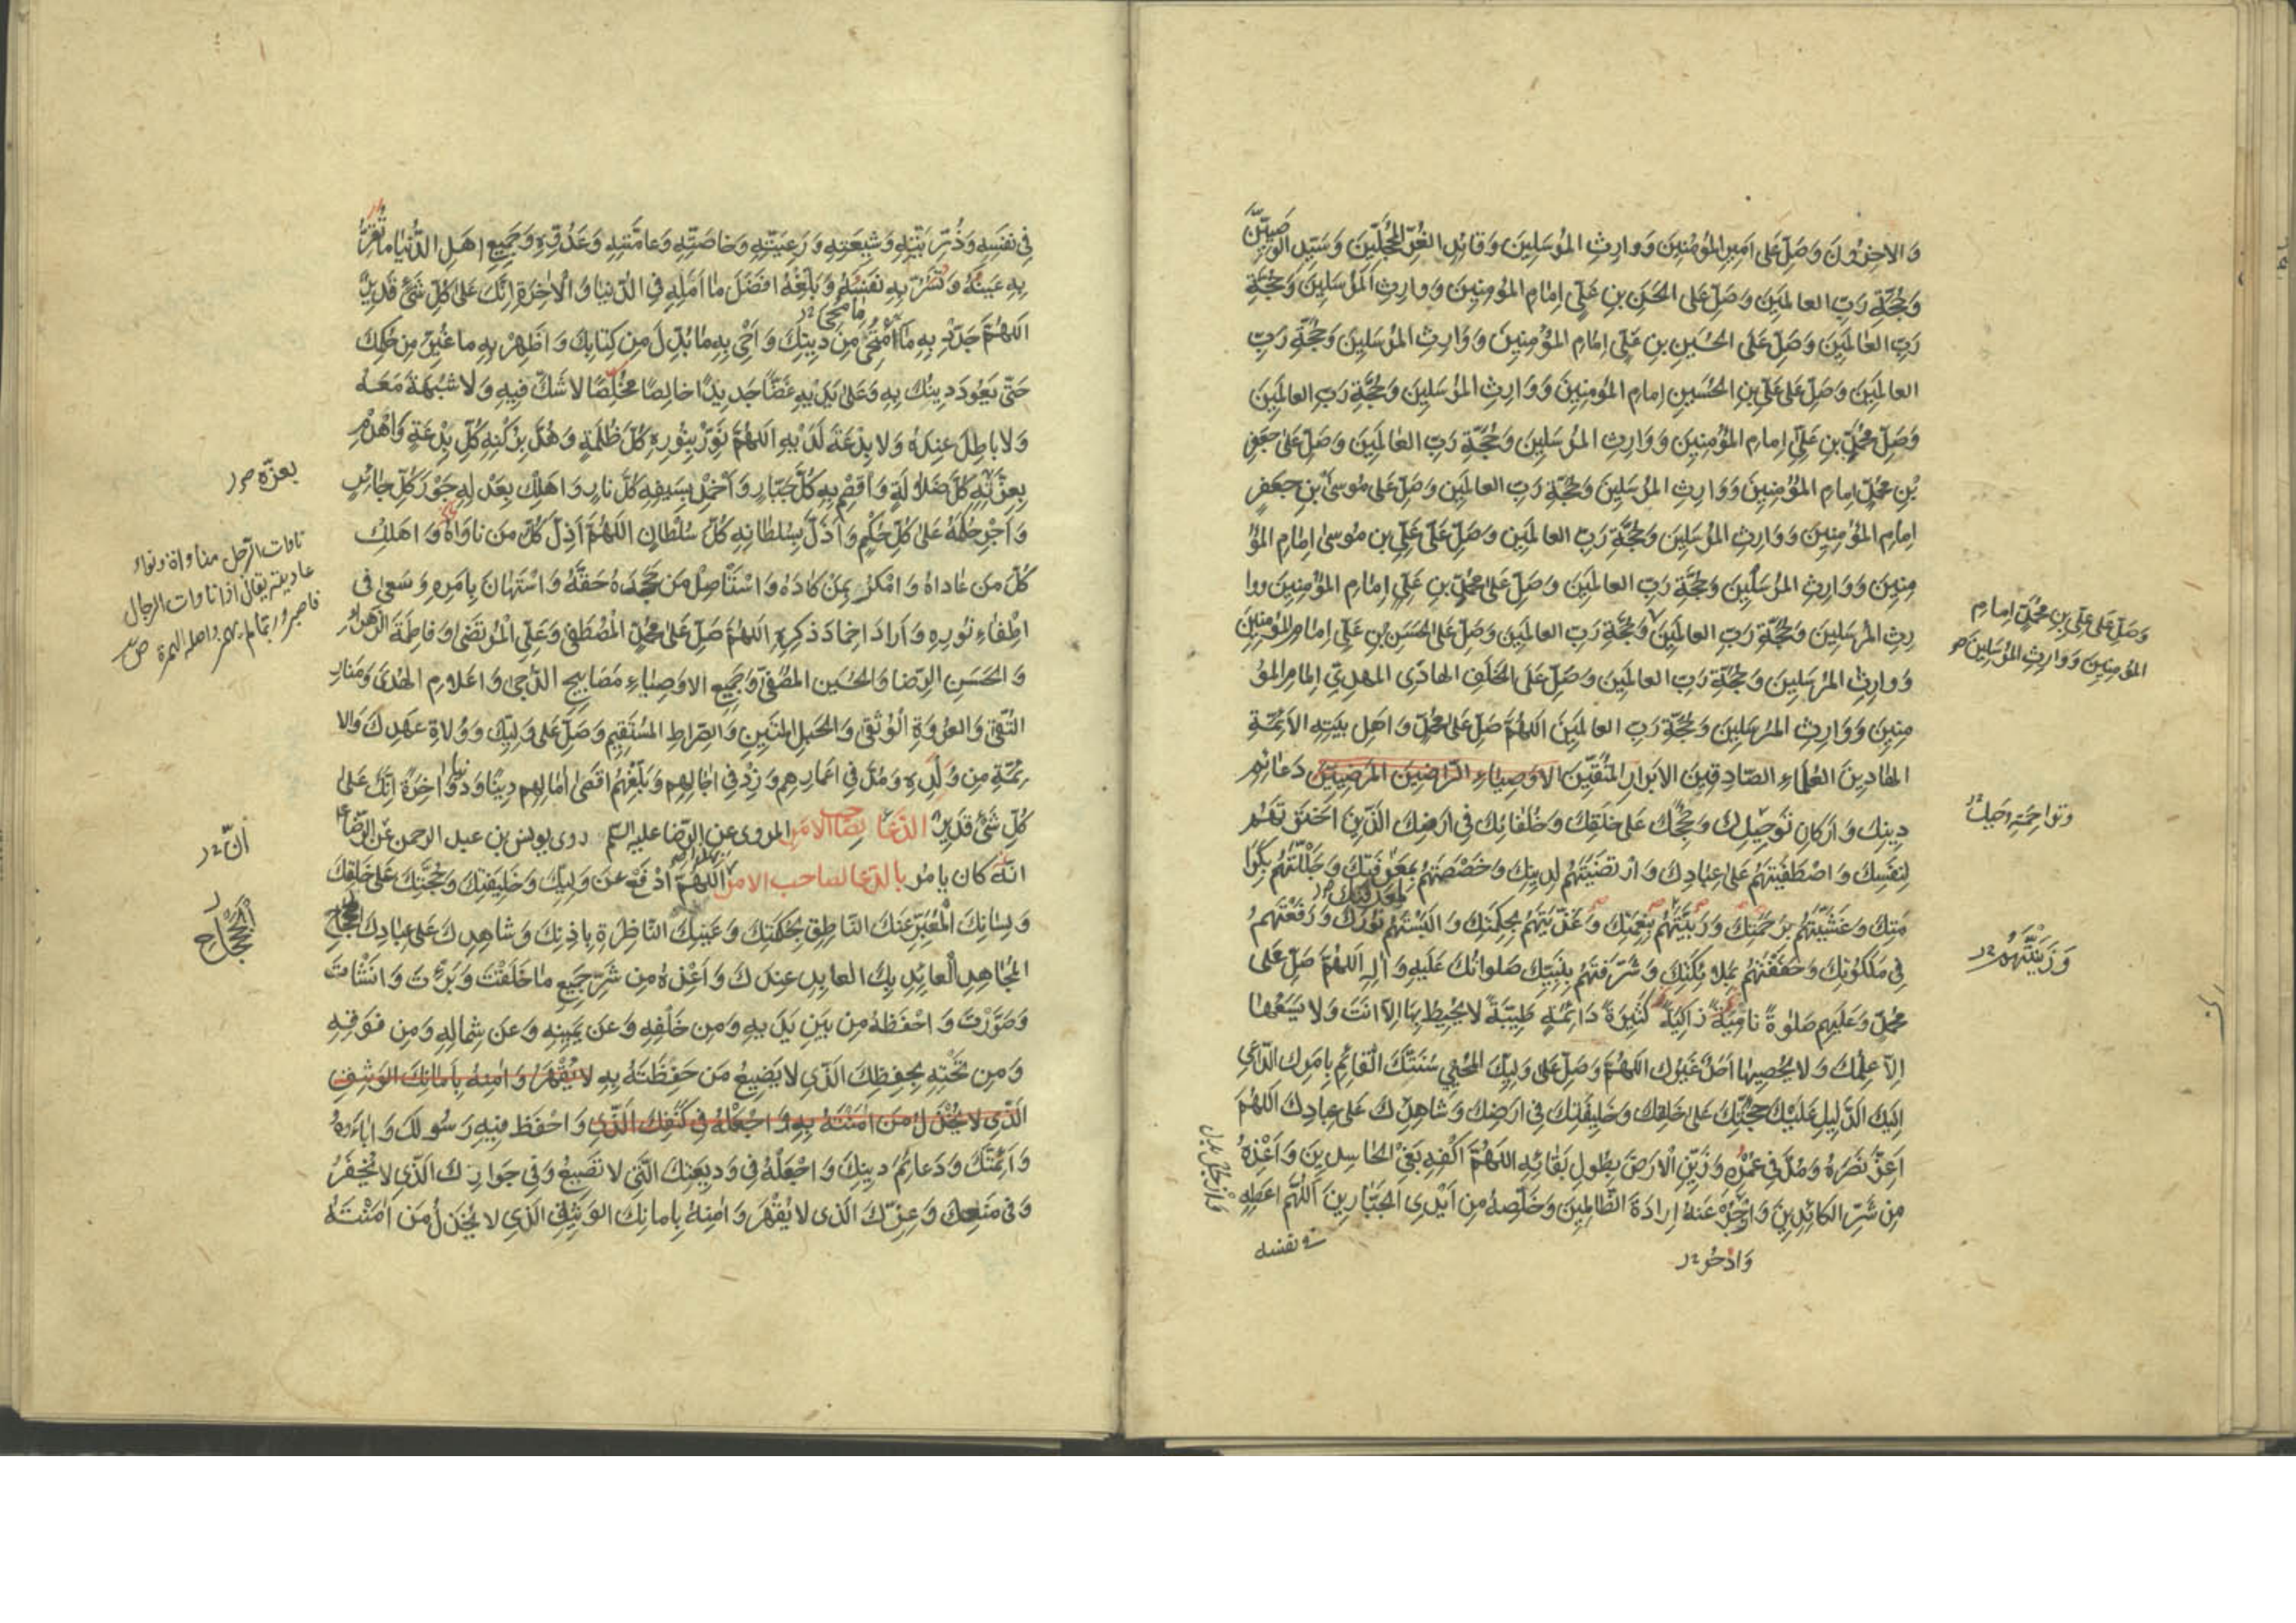 وَالاخِرُونَ وَصَلِّ عَلى اَمِيرِ المُؤْمِنِينَ وَوارِثِ المُرسَلِينَ وَقائِدِ الغُرِّ المُحَجَّلِينَ وَسَيِّدِ الوَصِيِّينَ
وَحُجَّةِ رَبِّ العالَمِينَ وَصَلِّ عَلى الحَسَنِ بنِ عَلِيٍّ اِمامِ المُؤمِنِينَ وَوارِثِ المُرْسَلِينَ وَحُجَّةِ
رَبِّ العالَمِينَ وَصَلِّ عَلَى الحُسَينِ بنِ عَلِيٍّ اِمامِ المُؤْمِنِينَ وَوَارِثِ المُرْسَلِينَ وَحُجَّةِ رَبِّ
العالَمِينَ وَصَلِّ عَلى عَلِيِّ بنِ الحُسَينِ اِمامِ المُؤمِنِينَ وَوَارِثِ المُرسَلِينَ وَحُجَّةِ رَبِّ العالَمِينَ
وَصَلِّ مُحَمَّدِ بنِ عَلِيٍّ اِمامِ المُؤْمِنِينَ وَوَارِثِ المُرسَلِينَ وَحُجَّةِ رَبِّ العالَمِينَ وَصَلِّ عَلى جَعفَرِ
بْنِ مُحَمَّدٍ اِمامِ المُؤمِنِينَ وَوَارِثِ المُرسَلِينَ وَحُجَّةِ رَبِّ العالَمِينَ وَصَلِّ عَلى مُوسَى بْنِ جَعفَرٍ
اِمامِ المُؤمِنِينَ وَوَارِثِ المُرْسَلِينَ وَحُجَّةِ رَبِّ العالَمِينَ وَصَلِّ عَلى عَلِيِّ بنِ مُوسى اِمامِ المُؤْ
مِنِينَ وَوَارِثِ المُرْسَلِينَ وَحُجَّةِ رَبِّ العالَمِينَ وَصَلِّ عَلى مُحَمَّدِ بنِ عَلِيٍّ اِمامِ المُؤمِنِينَ ووا
رِثِ المُرسَلِينَ وَحُجَّةِ رَبِّ العالَمِينَ وَحُجَّةِ رَبِّ العالَمِينَ وَصَلِّ عَلى الحَسَنِ بنِ عَلِيٍّ اِمامِ المُؤمِنِينَ
وَصَلِّ عَلى عَلِيِّ بنِ مُحَمَّدٍ اِمامِ
المُؤمِنِينَ وَوارِثِ المُرْسَلِينَ
وَوارِثِ المُرسَلِينَ وَحُجَّةِ رَبِّ العالَمِينَ وَصَلِّ عَلَى الخَلَفِ الهادِى المهدِيِّ اِمامِ المُؤْ
مِنِينَ وَوَارِثِ المُرسَلِينَ وَحُجَّةِ رَبِّ العالَمِينَ اَللّهُمَّ صَلِّ عَلى مُحَمَّدٍ وَاَهلِ بَيتِهِ الاَئِمَّةِ
الهادِينَ العُلَماءِ الصّادِقِينَ الاَبرارِ المُتَّقِينَ الاَوصِياءِ الرّاضِينَ المَرضِيِّينَ دَعائِمِ
دِينِكَ وَاَركانِ تَوحِيدِكَ وَحُجَجِكَ عَلى خَلقِكَ وَخُلَفائِكَ فى اَرضِكَ الَّذِينَ اختَرتَهُم
لِنَفسِكَ وَاصْطَفَيتَهُم عَلى عِبادِكَ وَارتَضَيتَهُم لِدِينِكَ وَخَصَصتَهُم بِمَعرِفَتِكَ وَجَلَّلتَهُم بِكَرا
مَتِكَ وَغَشَّيتَهُم بِرَحمَتِكَ وَرَبَّيتَهُم بِنِعمَتِكَ وَغَذَّيتَهُم بِحِكمَتِكَ وَاَلبَستَهُم نُورَكَ وَرَفَعتَهُم
وَزَيَّنتَهُم
فى مَلَكُوتِكَ وَحَفَفتَهُم بِمَلائِكَتِكَ وَشَرَّفتَهُم بِنَبِيِّكَ صَلَواتُكَ عَلَيهِ وَآلِهِ اَللّهُمَّ صَلِّ عَلى
مُحَمَّدٍ وَعَلَيهِم صَلوةً نامِيَةً زاكِيَةً كَثِيرَةً دائِمَةً طَيِّبَةً لا يُحِيطُ بِها اِلّا اَنتَ وَلا يَسَعُها
اِلّا عِلمُكَ وَلا يُحصِيها اَحَدٌ غَيرُكَ اَللّهُمَّ وَصَلِّ عَلى وَلِيِّكَ المُحيِي سُنَّتَكَ القائِمِ بِاَمرِكَ الدّاعِي
اِلَيكَ الدَّلِيلِ عَلَيكَ حُجَّتِكَ عَلى خَلقِكَ وَخَلِيفَتِكَ فى اَرضِكَ وَشاهِدِكَ عَلى عِبادِكَ اَللّهُمَّ
اَعِزَّ نَصرَهُ وَمُدَّ فى عُمرِهِ وَزَيِّنِ الاَرضَ بِطُولِ بَقائِهِ اَللّهُمَّ اكفِهِ بَغيَ الحاسِدِينَ وَاَعِذهُ
مِن شَرِّ الكائِدِينَ وَازجُر عَنهُ اِرادَةَ الظّالِمِينَ وَخَلِّصهُ مِن اَيدِى الجَبّارِينَ اَللّهُمَّ اَعطِهِ
فى نفسه
وَادحُر
فِى نَفسِهِ وَذُرِّيَّتِهِ وَشِيعَتِهِ وَرَعِيَّتِهِ وَخاصَّتِهِ وَعامَّتِهِ وَعَدُوِّهِ وَجَمِيعِ اَهلِ الدُّنيا ما تُقِرُّ
بِهِ عَينَهُ وَتَسُرُّ بِهِ نَفسَهُ وَبَلِّغهُ اَفضَلَ ما اَمَلَهِ فِى الدُّنيا وَالاخِرَةِ اِنَّكَ عَلى كُلِّ شَئٍ قَدِيرٌ
اَللّهُمَّ جَدِّد بِهِ ما امتُحِىَ مِن دِينِكَ وَاَحْىِ بِهِ ما بُدِّلَ مِن كِتابِكَ وَاَظهِر بِهِ ما غُيِّرَ مِن حُكمِكَ
حَتّى يَعُودَ دِينُكَ بِهِ وَعَلى يَدَيهِ غَضًّا جَدِيدًا خالِصًا مُخلَصًا لا شَكَّ فِيهِ وَلا شُبهَةَ مَعَهُ
وَلا باطِلَ عِندَهُ وَلا بِدعَةَ لَدَيهِ اَللّهُمَّ نَوِّر بِنُورِهِ كُلَّ ظُلمَةٍ وَهُدَّ بِرُكنِهِ كُلَّ بِدعَةٍ وَاهدِم
بِعِزَّتِهِ كُلَّ ضَلالَةٍ وَاقصِم بِهِ كُلَّ جَبّارٍ وَاَخمِد بِسَيفِهِ كُلَّ نارٍ وَاَهلِك بِعَدلِهِ جَورَ كُلِّ جائِرٍ
بعزّه
وَاَجرِ حُكمَهُ عَلى كُلِّ حُكمٍ وَاَذِلَّ بِسُلطانِهِ كُلَّ سُلطانٍ اَللّهُمَّ اَذِلَّ كُلَّ مَن ناواهُ وَاَهلِك
كُلَّ مَن عاداهُ وَامكُر بِمَن كادَهُ وَاستَأصِل مَن جَحَدَهُ حَقَّهُ وَاستَهانَ بِاَمرِهِ وَسَعى فى
اِطفاءِ نُورِهِ وَاَرادَ اِخمادَ ذِكرِهِ اَللّهُمَّ صَلِّ عَلى مُحَمَّدٍ المُصطَفى وَعَلِيٍّ المُرتَضى وَفاطِمَةَ الزَّهراءِ
وَالحَسَنِ الرِّضا وَالحُسَينِ المُصَفّى وَجَمِيعِ الاَوصِياءِ مَصابِيحِ الدُّجى وَاَعلامِ الهُدى وَمَنارِ
التُّقى وَالعُروَةِ الوُثقى وَالحَبلِ المَتِينِ وَالصِّراطِ المُستَقِيمِ وَصَلِّ عَلى وَلِيِّكَ وَوُلاةِ عَهدِكَ وَالا
ئِمَّةِ مِن وُلدِهِ وَمُدَّ فى اَعمارِهِم وَزِد فى اجالِهِم وَبَلِّغهُم اَقصى امالِهِم دِينًا وَدُنيا وَاخِرَةً اِنَّكَ عَلى
كُلِّ شَئٍ قَدِيرٌ الدّعا لصاحب الامر المروى عن الرّضا عليه السلم روى يونس بن عبد الرحمن عن الرّضا
انّ
انّه كان يامُر بالدّعا لصاحب الامر اللّهُمَّ ادفَع عَن وَلِيِّكَ وَخَلِيفَتِكَ وَحُجَّتِكَ عَلى خَلقِكَ
وَلِسانِكَ المُعَبِّرِ عَنكَ النّاطِقِ بِحُكمَتِكَ وَعَينِكَ النّاظِرَةِ بِاِذنِكَ وَشاهِدِكَ عَلى عِبادِكَ
الجحجاح
المُجاهِدِ العائِذِ بِكَ العابِدِ عِندَكَ وَاَعِذهُ مِن شَرِّ جَمِيعِ ما خَلَقتَ وَبَرَأتَ وَاَنشَأتَ
وَصَوَّرتَ وَاحفَظهُ مِن بَينِ يَدَيهِ وَمِن خَلفِهِ وَعَن يَمِينِهِ وَعَن شِمالِهِ وَمِن فَوقِهِ
وَمِن تَحتِهِ بِحِفظِكَ الَّذِى لا يَضِيعُ مَن حَفِظتَهُ بِهِ لا يُقهَرُ وَامِنهُ بِاَمانِكَ الوَثِيقِ
الَّذِى لا يُخذَلُ مَن امَنتَهُ بِهِ وَاجعَلهُ فى كَنَفِكَ الَّذِى وَاحفَظ فِيهِ رَسُولَكَ وَاباءَهُ
وَاَئِمَّتَكَ وَدَعائِمَ دِينِكَ وَاجعَلهُ فى وَدِيعَتِكَ الَّتِى لا تَضِيعُ وَفى جَوارِكَ الَّذِى لا يُخفَرُ
وَفى مَنعِكَ وَعِزِّكَ الَّذِى لا يُقهَرُ وَامِنهُ بِاَمانِكَ الوَثِيقِ الَّذِى لا يُخذَلُ مَن امَنتَهُ